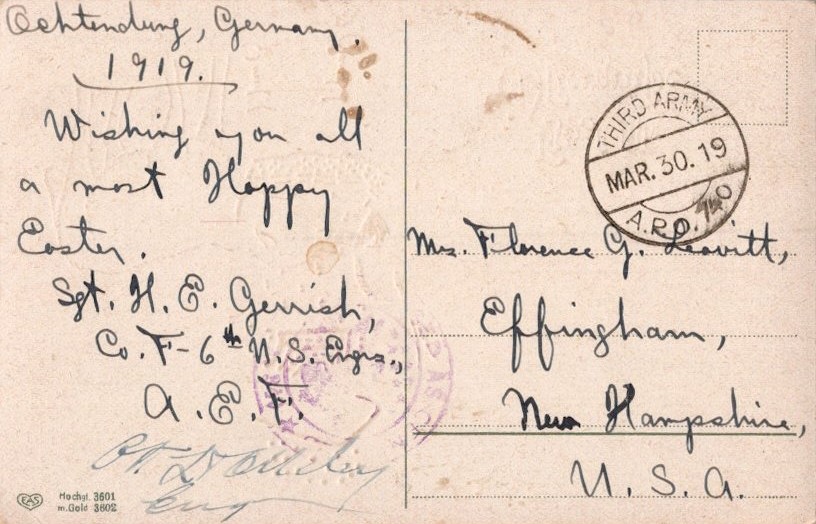 Ochtendung, Germany.
1919.
Wishing you all
a most Happy
Easter.
Sgt. H. E. Gerrish,
Co. F-6th U.S. Engrs.,
A. E. F.
EAS
Hochgl. 3601
m. Gold 3602
THIRD ARMY
MAR. 30. 19
A.P.O. 740
Mrs. Florence G. Leavitt,
Effingham,
New Hampshire,
U. S. A.